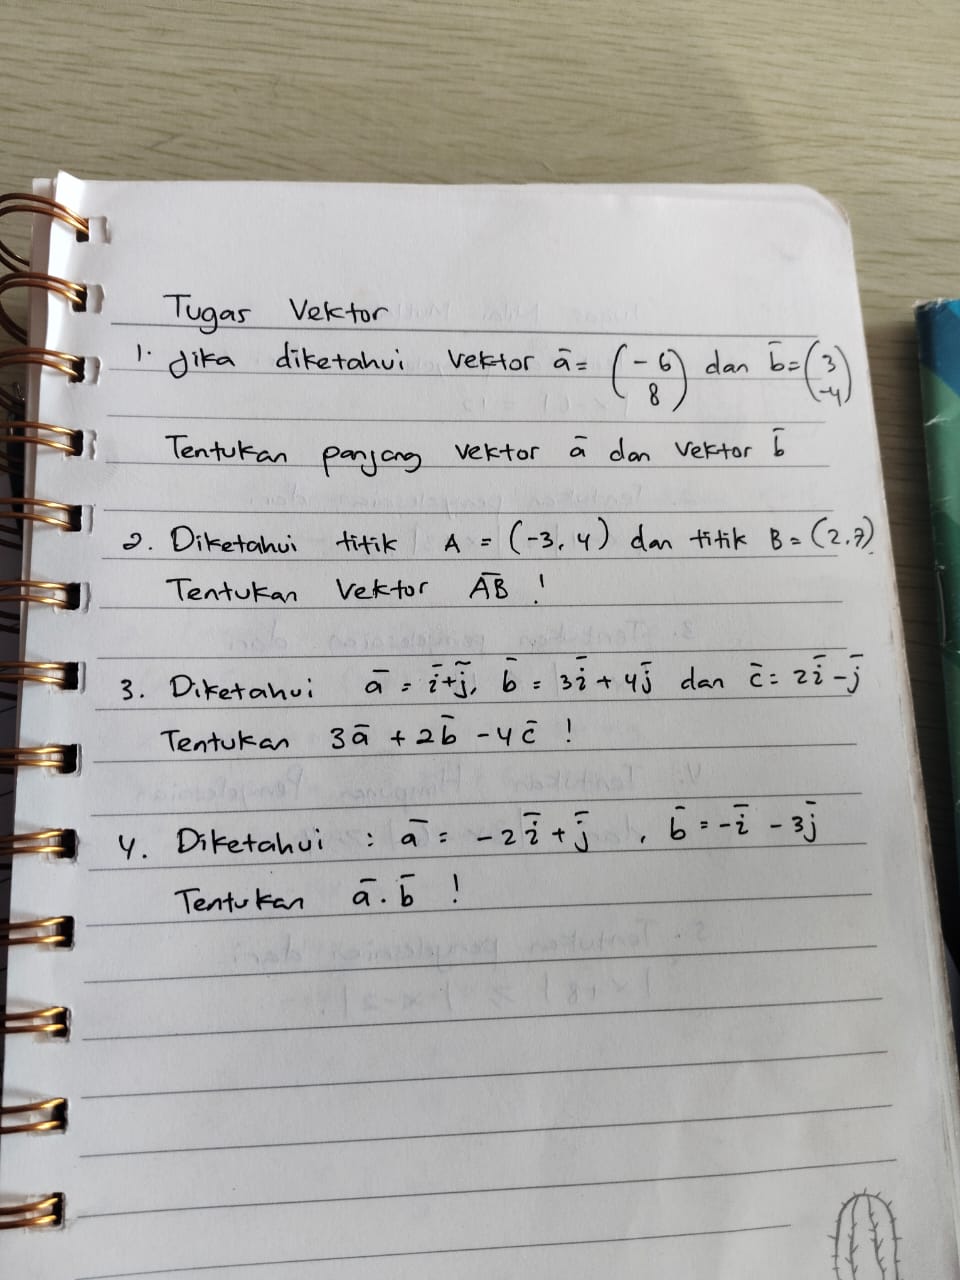 Tugas Vektor
1. Jika diketahui vektor ā = (-6 8) dan b̄ = (3 -4)
Tentukan panjang vektor ā dan vektor b̄
2. Diketahui titik A = (-3, 4) dan titik B = (2,7)
Tentukan Vektor A̅B̅ !
3. Diketahui ā = ī + j̄, b̄ = 3ī + 4j̄ dan c̄ = 2ī - j̄
Tentukan 3ā + 2b̄ - 4c̄ !
4. Diketahui : ā = -2ī + j̄ , b̄ = -ī - 3j̄
Tentukan ā . b̄ !